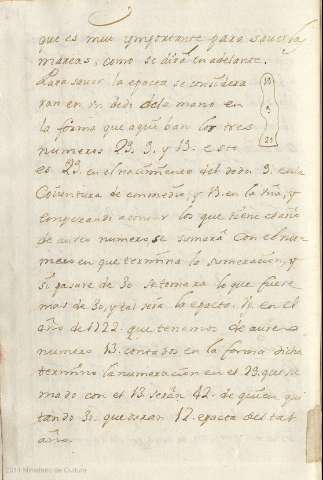 que es muy ymportante para saver la
mareas, como se dirá en adelante.
Para saver la epacta se considera
ran en un dedo de la mano en
la forma que aqui ban los tres
numeros 29. 9. y 13. esto
es 29. en el nacimiento del dedo 9. en la
Coiuntura de enmedio, y 13. en la uña, y
empezando a contar los que tiene el año
de aureo numero se sumará con el nu-
mero en que termina la numeracion, y
si pasare de 30. se tomara lo que fuere
mas de 30, y tal será la epacta. en el
año de 1722. que tenemos de aureo
numero 13. contados en la forma dicha
termino la numeracion en el 29. que su
mado con el 13. serán 42. de quien qui
tando 30. quedaran 12. epacta del tal
año.
13
9
29
2011 Ministerio de Cultura